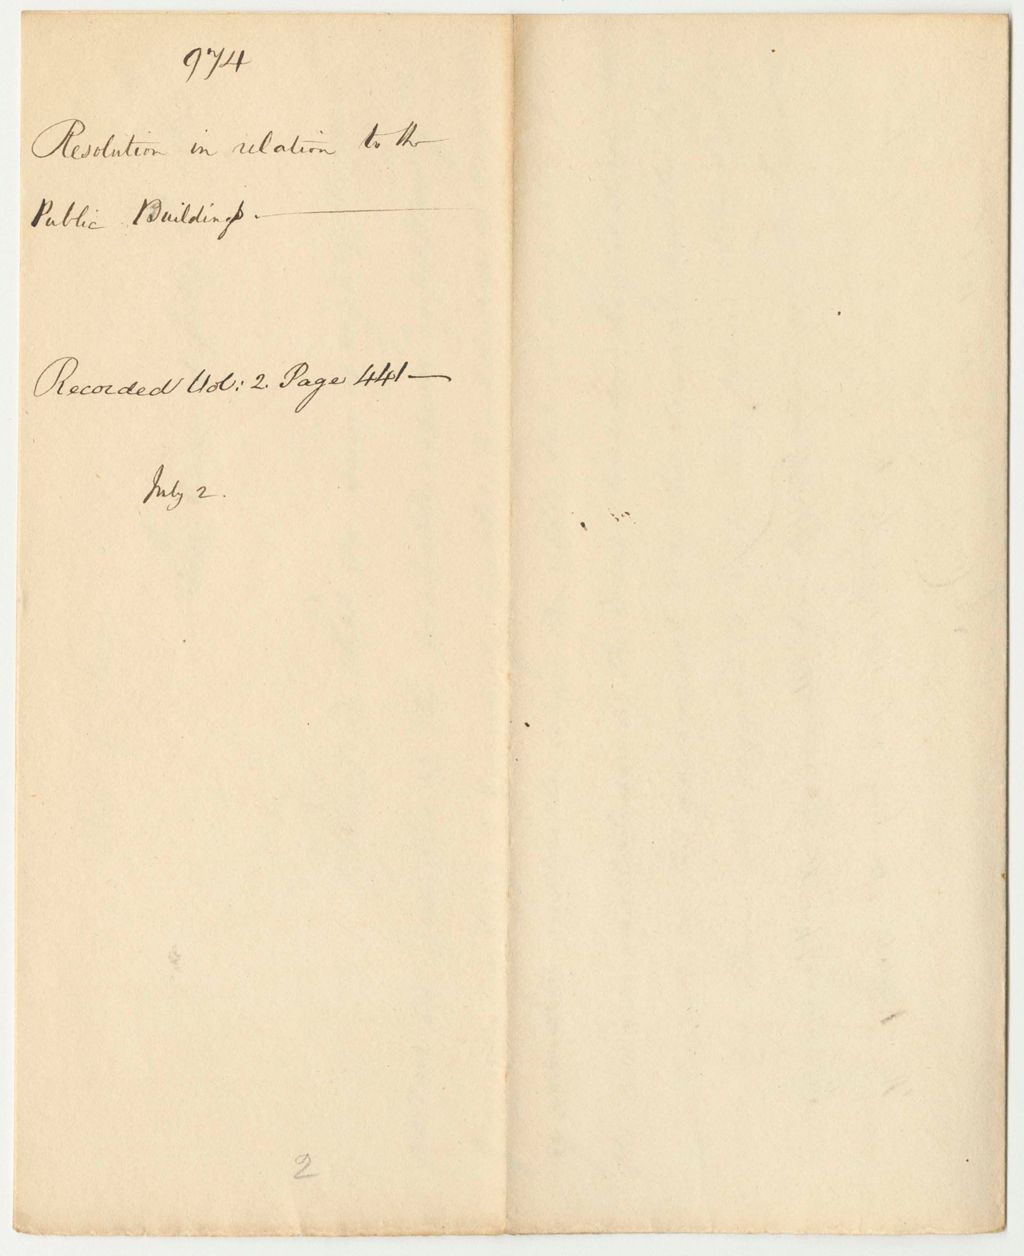 974
Resolution in relation to the
Public Buildings.
Recorded Vol: 2. Page 441
July 2.
2